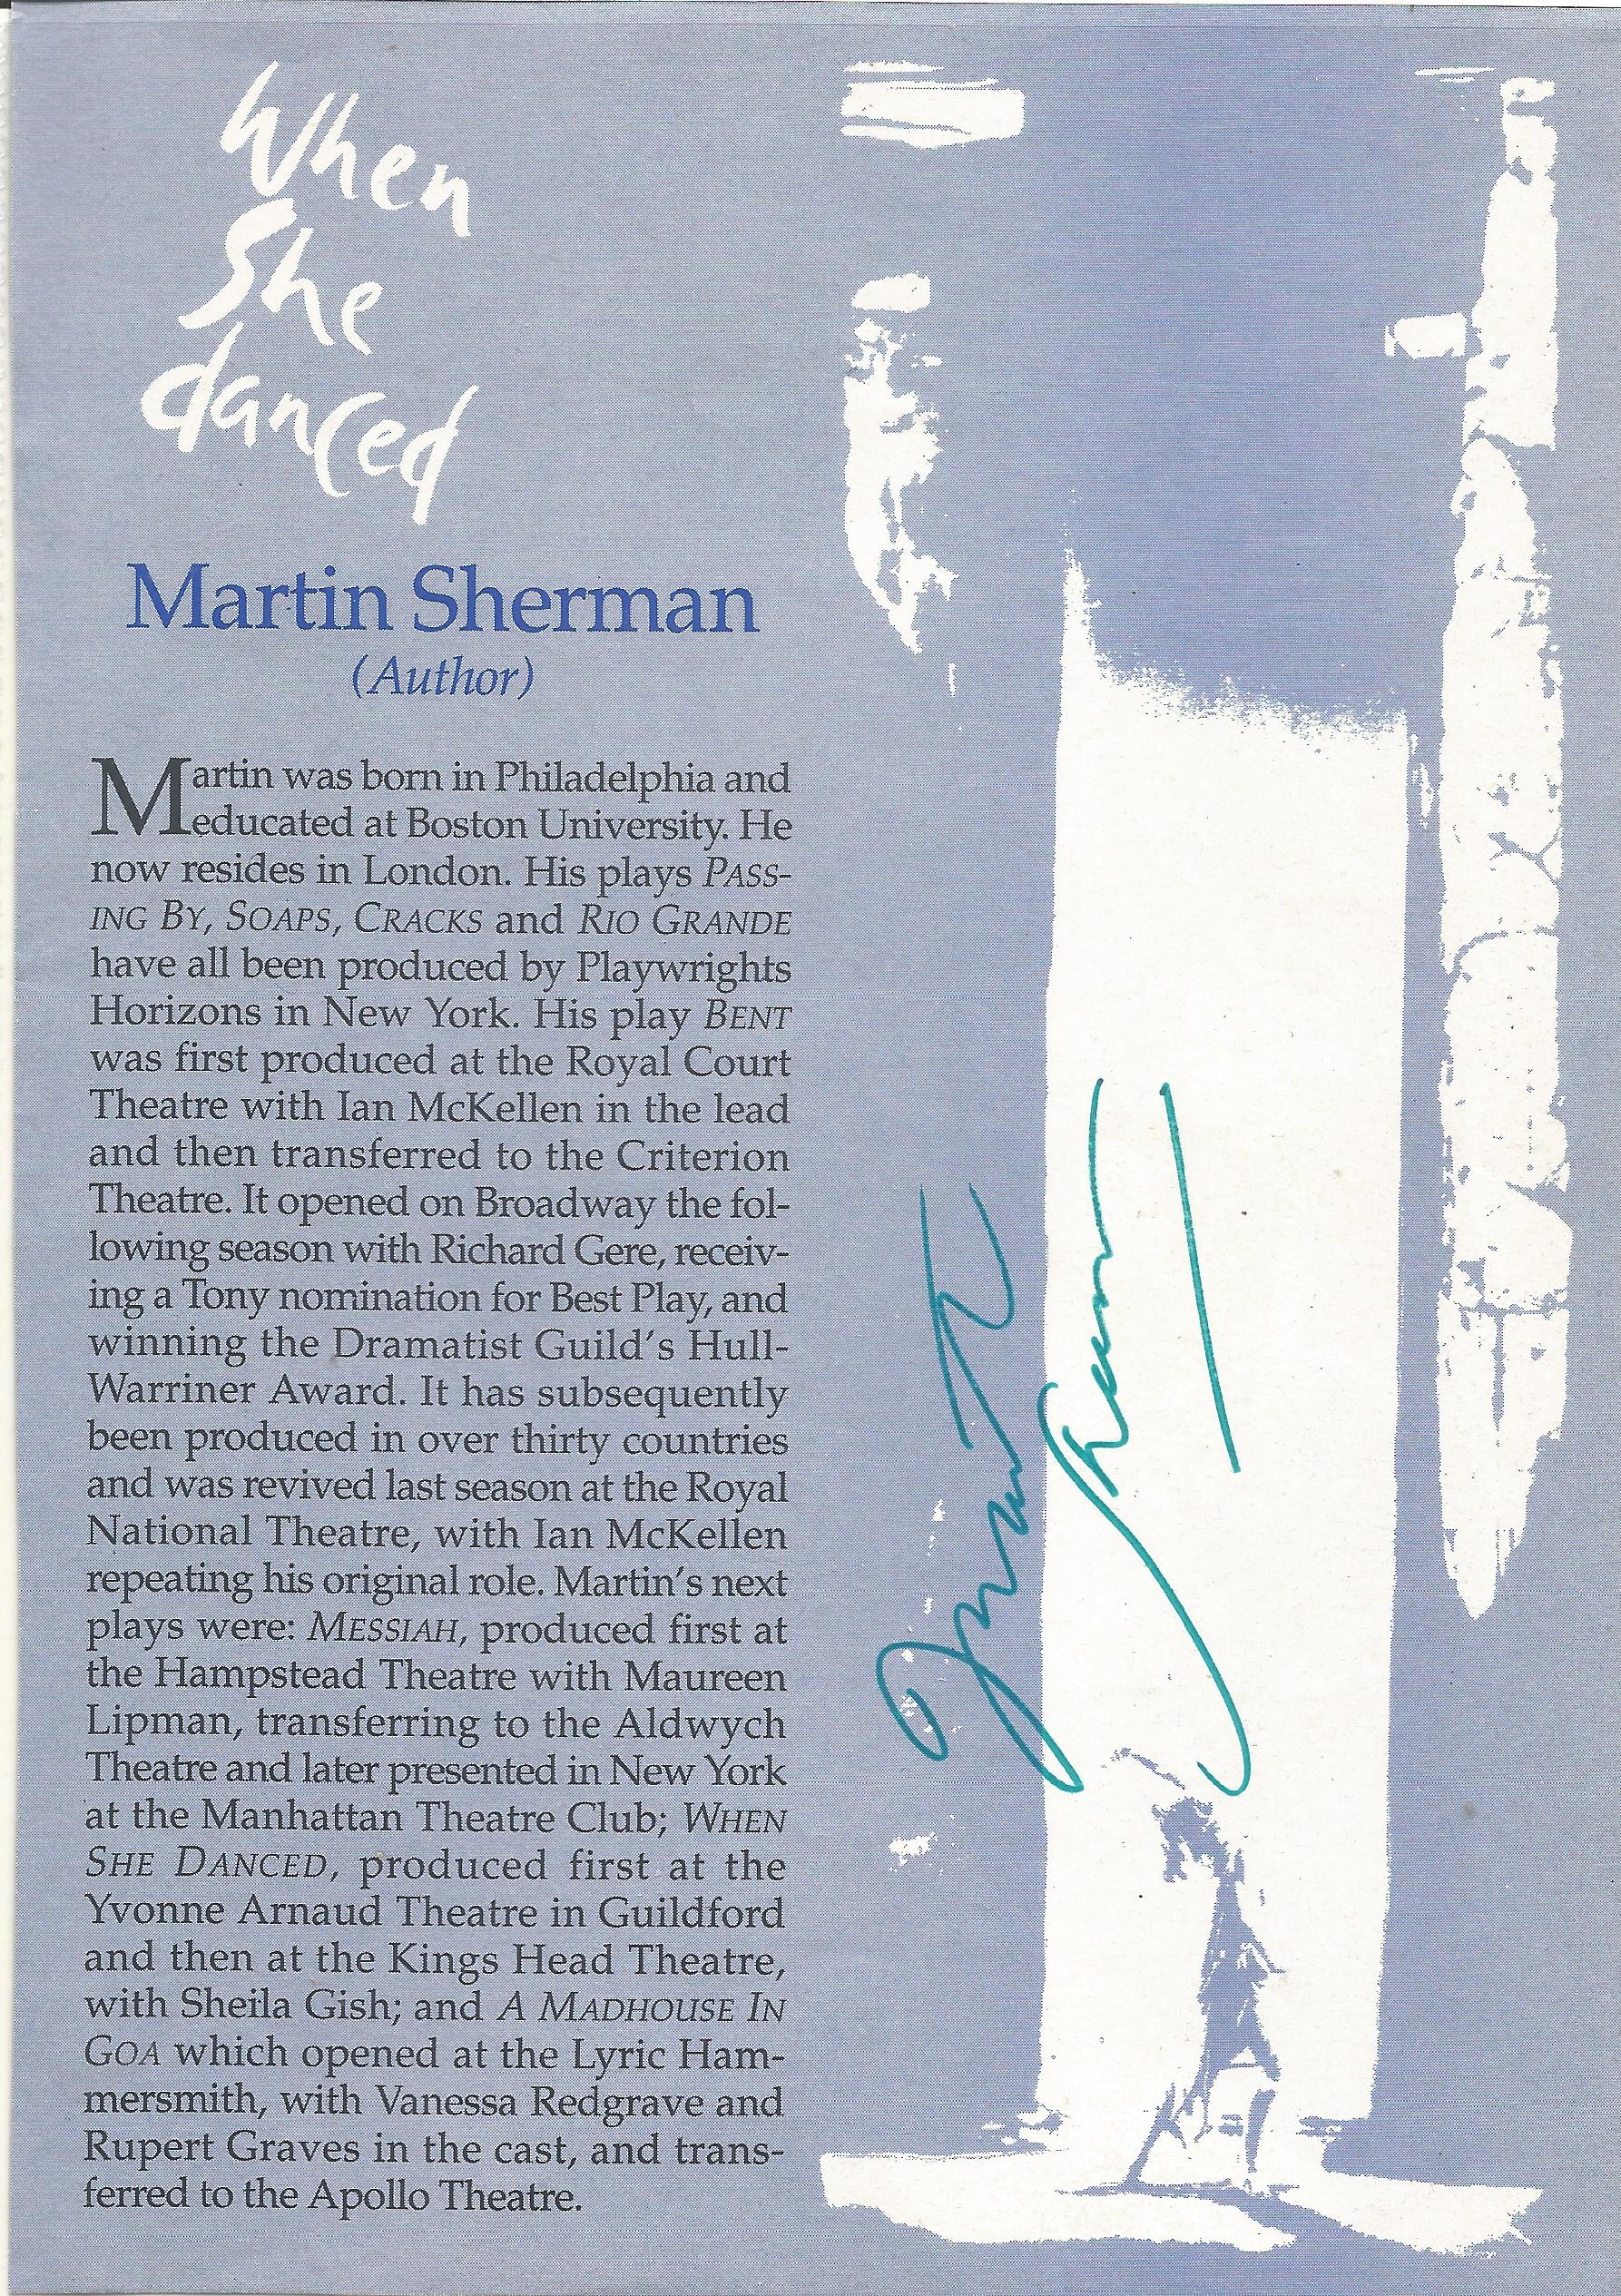 When
She
danced
Martin Sherman
(Author)
Martin was born in Philadelphia and
educated at Boston University. He
now resides in London. His plays PASS-
ING BY, SOAPS, CRACKS and RIO GRANDE
have all been produced by Playwrights
Horizons in New York. His play BENT
was first produced at the Royal Court
Theatre with Ian McKellen in the lead
and then transferred to the Criterion
Theatre. It opened on Broadway the fol-
lowing season with Richard Gere, receiv-
ing a Tony nomination for Best Play, and
winning the Dramatist Guild's Hull-
Warriner Award. It has subsequently
been produced in over thirty countries
and was revived last season at the Royal
National Theatre, with Ian McKellen
repeating his original role. Martin's next
plays were: MESSIAH, produced first at
the Hampstead Theatre with Maureen
Lipman, transferring to the Aldwych
Theatre and later presented in New York
at the Manhattan Theatre Club; WHEN
SHE DANCED, produced first at the
Yvonne Arnaud Theatre in Guildford
and then at the Kings Head Theatre,
with Sheila Gish; and A MADHOUSE IN
GOA which opened at the Lyric Ham-
mersmith, with Vanessa Redgrave and
Rupert Graves in the cast, and trans-
ferred to the Apollo Theatre.
Martin
Sherman